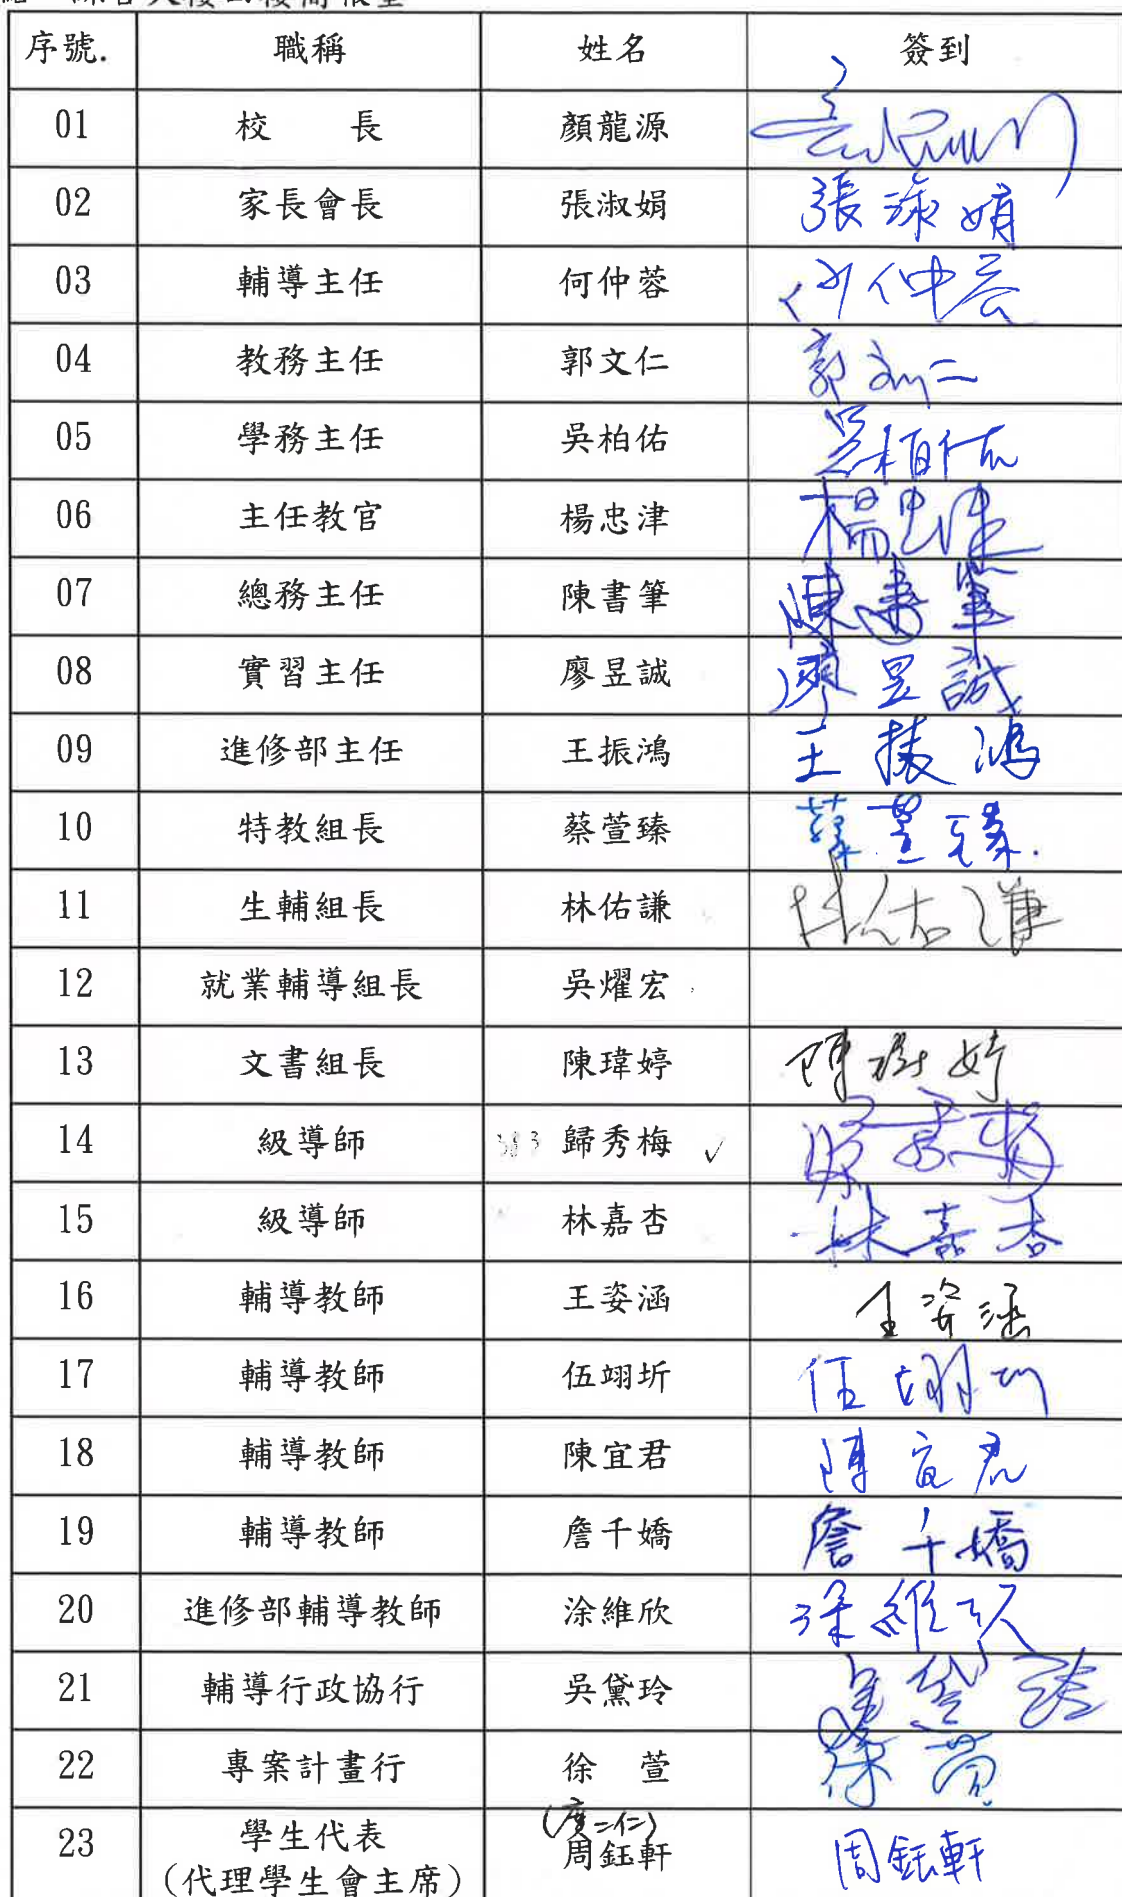 序號. 職稱 姓名 簽到
01 校 長 顏龍源
02 家長會長 張淑娟 張淑娟
03 輔導主任 何仲蓉 何仲蓉
04 教務主任 郭文仁 郭文仁
05 學務主任 吳柏佑 吳柏佑
06 主任教官 楊忠津 楊忠津
07 總務主任 陳書筆 陳書筆
08 實習主任 廖昱誠 廖昱誠
09 進修部主任 王振鴻 王振鴻
10 特教組長 蔡萱臻 蔡萱臻.
11 生輔組長 林佑謙 林佑謙
12 就業輔導組長 吳燿宏
13 文書組長 陳瑋婷 陳瑋婷
14 級導師 歸秀梅 ✓
15 級導師 林嘉杏 林嘉杏
16 輔導教師 王姿涵 王姿涵
17 輔導教師 伍翊圻 伍翊圻
18 輔導教師 陳宜君 陳宜君
19 輔導教師 詹千嬌 詹千嬌
20 進修部輔導教師 涂維欣 涂維欣
21 輔導行政協行 吳黛玲 吳黛玲
22 專案計畫行 徐 萱 徐萱
(廣二仁)
23 學生代表 周鈺軒 周鈺軒
(代理學生會主席)